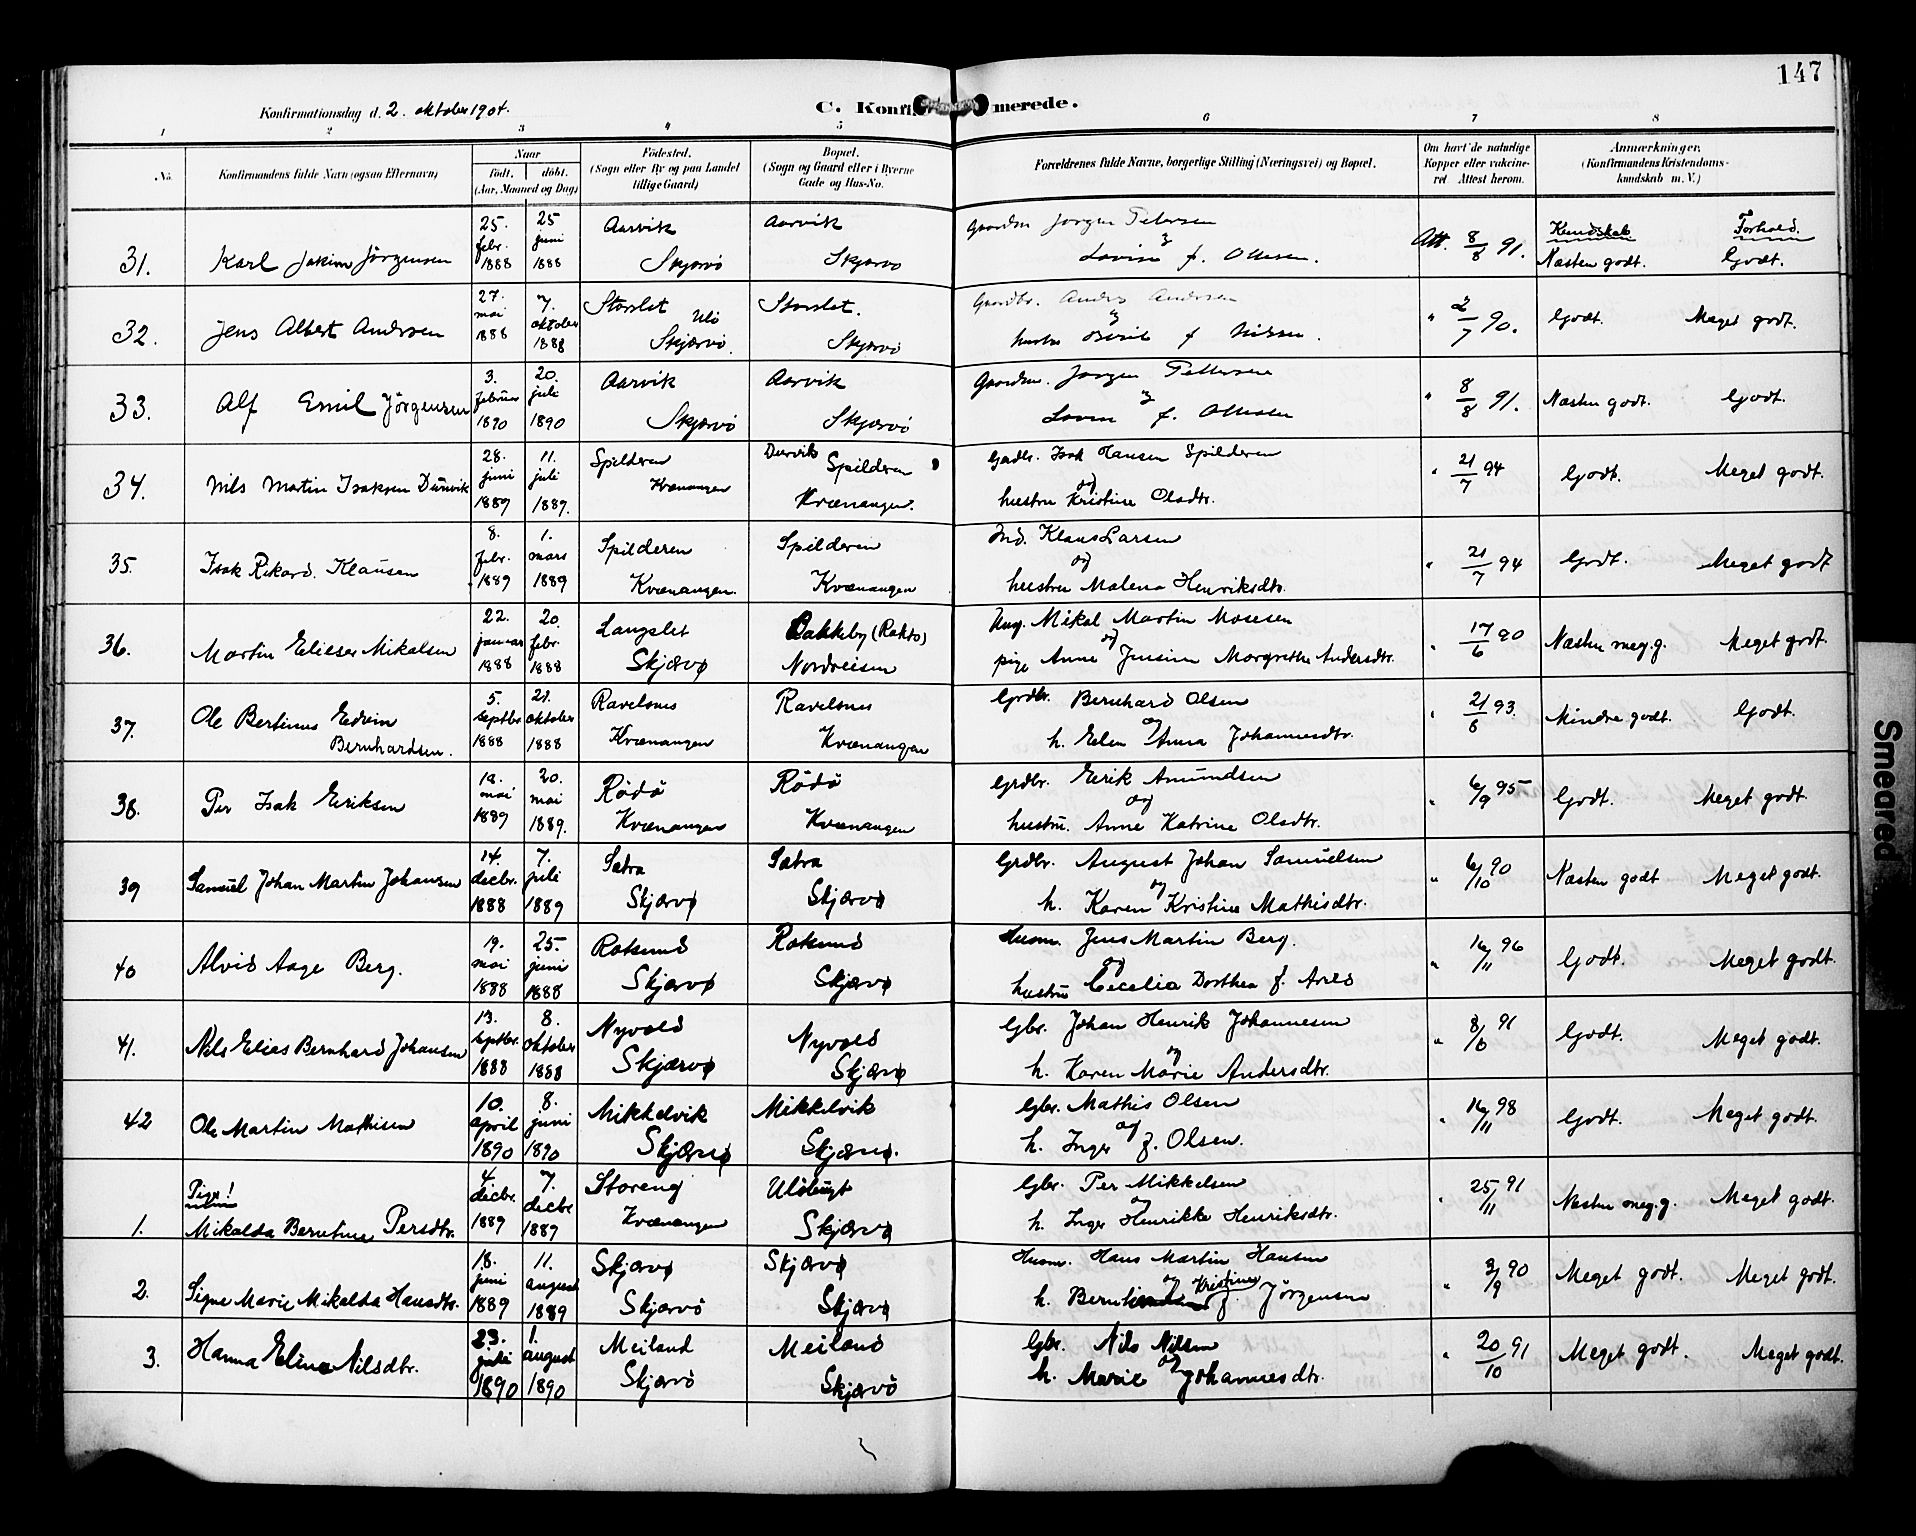 147
Konfirmationsdag d. 2. oktober 1904.
C. Konfirmerede.
1 2 3 4 5 6 7 8
No.
Konfirmandens fulde Navn (ogsaa Efternavn)
Naar
født. døbt.
(Aar, Maaned og Dag)
Fødested.
(Sogn eller By og paa Landet
tillige Gaard)
Bopæl.
(Sogn og Gaard eller i Byerne
Gade og Hus-No.
Forældrenes fulde Navne, borgerlige Stilling (Næringsvei) og Bopæl.
Om havt de naturlige
Kopper eller vakcine-
ret Attest herom.
Anmærkninger.
(Konfirmandens Kristendoms-
kundskab m. V.)
25. 25 Aarvik Aarvik Jørgen Petersen Kundskab Forhold.
febr. juni
31. Karl Jakim Jørgensen 1888 1888 Skjærvø Skjærvø Lovise f. Ottesen. Att. 8/8 91. Næsten godt. Godt.
27. 7. Storslet Ulø Storslet. Gaardbr. Anders Andersen
mai oktober
32. Jens Albert Andersen 1888 1888 Skjærvø. Skjærvø hustru f Nilsen. " 2/7 90. Godt. Meget godt.
3. 20. Aarvik Aarvik Jørgen Pettersen
februar juli
33. Alf Emil Jørgensen 1890 1890 Skjærvø Skjærvø f. Ottesen " 8/8 91. Næsten godt. Godt.
28. 11. Spilderen Durvik Spilderen Gadbr. Isak Hansen Spilderen
juni juli Kvænangen og
34. Nils Martin Isaksen Durvik 1889 1889. Kvænangen. hustru Kristine Olsdtr. " 21/7 94 Godt. Meget godt.
8. 1. Spilderen Spilderen Ind. Klaus Larsen
febr. mars og
35. Isak Rikard. Klausen 1889 1889 Kvænangen. Kvænangen hustru Malena Henriksdtr. " 21/7 94 Godt. Meget godt
22. 20. Langslet Bakkeby (Rakto) Ung. Mikal Martin Mosesen
januar febr. og
36. Martin Elieser Mikalsen 1888 1888 Skjærvø Nordreisen pige Anne Jensine Margrethe Andersdtr. " 17/6 90 Næsten meg. g. Meget godt.
5. 21. Ravelsnes Ravelsnes Grdbr. Bernhard Olsen
septbr oktober og
37. Ole Bertinus Edvin Bernhardsen. 1888 1888 Kvænangen Kvænangen h. Elen Anna Johannesdtr. " 21/6 93. Mindre godt. Godt.
19. 20. Rødø Rødø Grdbr. Eirik Amundsen
mai mai og
38. Per Isak Eriksen 1889 1889. Kvænangen Kvænangen hustru. Anne Katrine Olsdtr. " 6/9 95 Godt. Meget godt.
14. 7. Satra Satra Grdbr. August Johan Samuelsen
decbr. juli og
39 Samuel Johan Martin Johansen 1888 1889 Skjærvø Skjærvø h. Karen Kristine Mathisdtr. " 6/10 90 Næsten godt Meget godt.
19. 25. Rotsund Rotsund Husm. Jens Martin Berg.
mai juni og
40 Alvid Aage Berg. 1888 1888 Skjærvø Skjærvø hustru Cecelia Dorthea f. " 16/11 96 Godt. Meget godt.
13. 8. Nyvold Nyvold Gbr. Johan Henrik Johannesen
septbr. oktober og
41. Nils Elias Bernhard Johansen 1888 1888 Skjærvø Skjærvø h. Karen Marie Andersdtr. " 8/6 91 Godt. Meget godt.
10. 8. Mikkelvik Mikkelvik Gbr. Mathis Olsen
april juni og
42 Ole Martin Mathisen 1890 1890 Skjærvø Skjærvø. h. Inger f. Olsen. " 16/11 98 Godt. Meget godt.
Piger! 4. 7. Storeng Uløbugt Gbr. Per Mikkelsen
decbr. decbr og
1. Mikalda Berntine Persdtr. 1889 1889 Kvænangen Skjærvø h. Inger Henrikke Henriksdtr. " 25/11 91 Næsten meg. g. Meget godt.
18. 11. Skjærvø Skjærvø Husm. Hans Martin Hansen
juni august og Kristine
2. Signe Marie Mikalda Hansdtr. 1889 1889 Skjærvø Skjærvø h. f. Jørgensen " 3/9 90 Meget godt. Meget godt.
23. 1. Meiland Meiland Gbr. Nils Nilsen
juli august og
3. Hanna Eline Nilsdtr. 1890 1890 Skjærvø Skjærvø h. Marie Johannesdtr. " 20/10 91 Meget godt. Meget godt.
Smeared